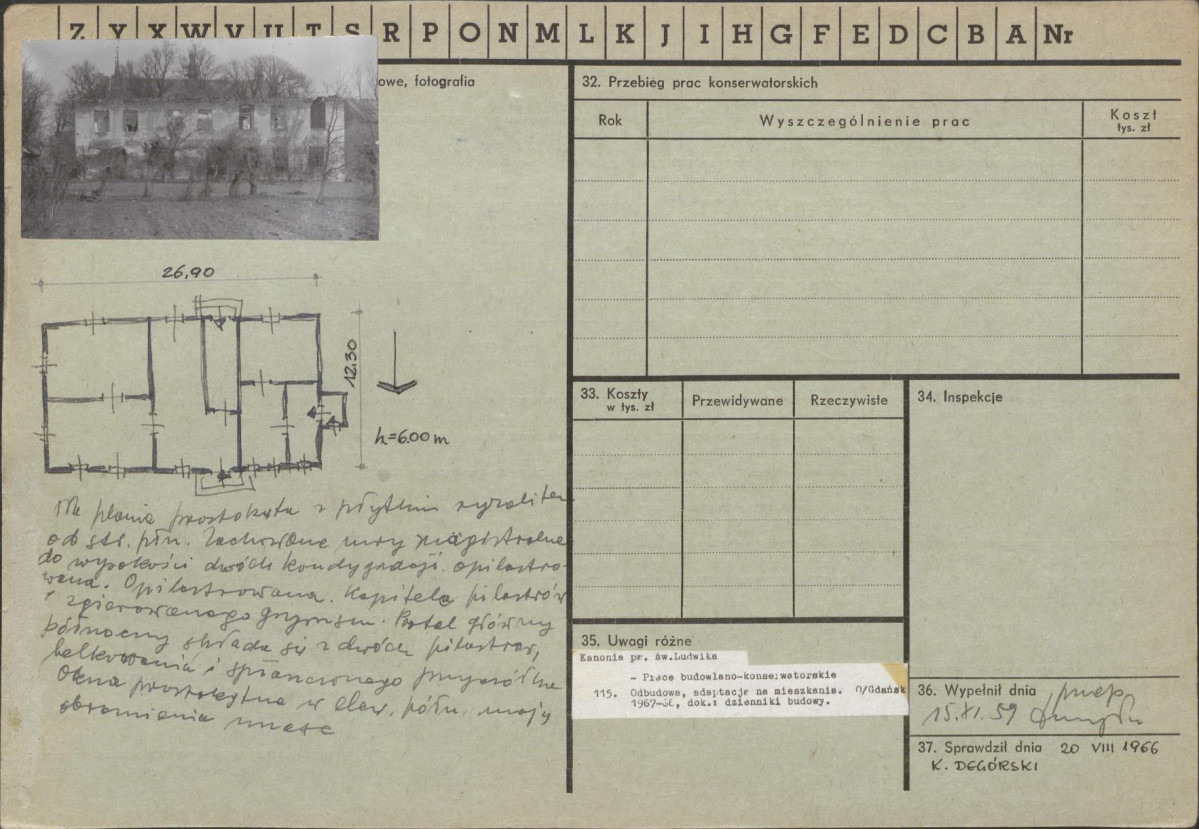 Z Y X W V U T S R P O N M L K J I H G F E D C B A Nr
owe, fotografia
26,90
12.30
h=6.00 m
Na planie prostokąta z płytkim ryzalitem
od str. płn. Zachowane mury magistralne
do wysokości dwóch kondygnacji. opilastro-
wana. Opilastrowana. Kapitele pilastrów
z zgierowanego gzymsu. Portal główny
północny składa się z dwóch pilastrów,
belkowania i spłaszczonego
Okna prostokątne w elew. półn. mają
obramienia
32. Przebieg prac konserwatorskich
Rok
Wyszczególnienie prac
Koszt
tys. zł
33. Koszty
w tys. zł
Przewidywane
Rzeczywiste
34. Inspekcje
35. Uwagi różne
Kanonia pw. św.Ludwika
- Prace budowlano-konserwatorskie
115. Odbudowa, adaptacje na mieszkania. O/Gdańsk
1967-68, dok.: dzienniki budowy.
36. Wypełnił dnia
15.XI.59
37. Sprawdził dnia 20 VIII 1966
K. DEGÓRSKI